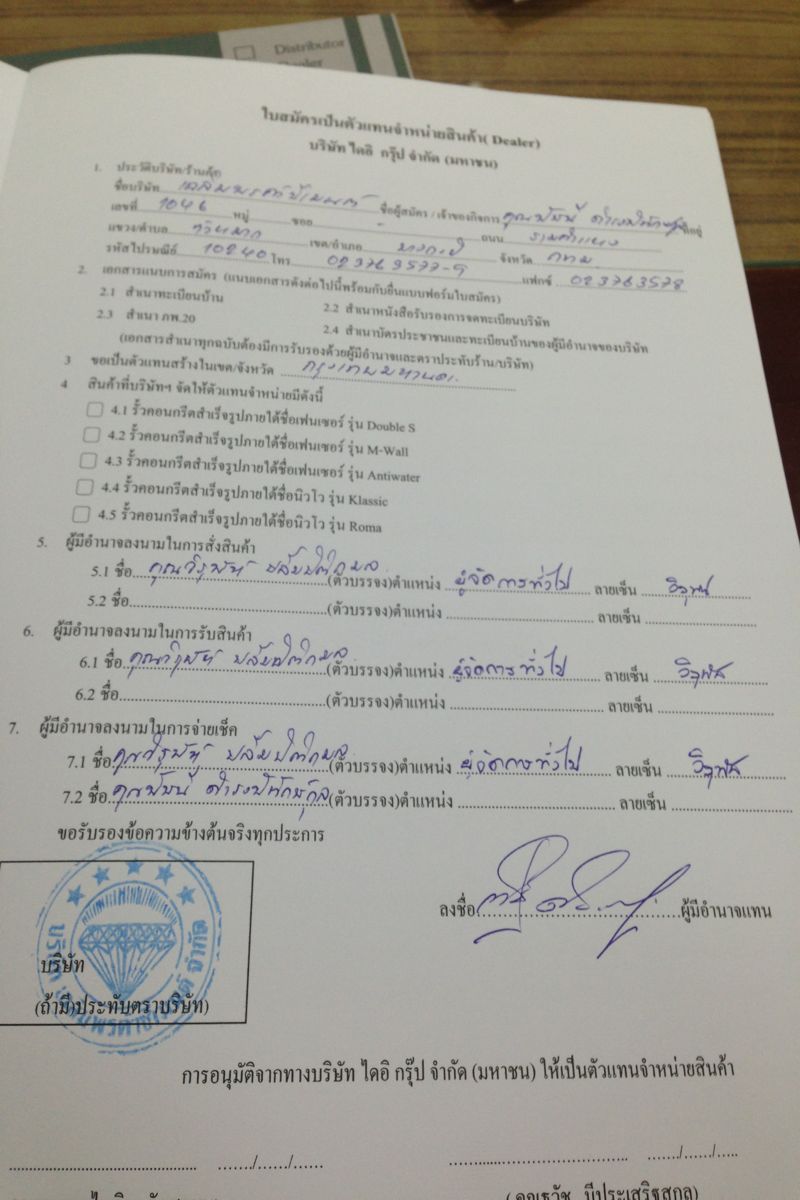 Distributor
Dealer
ใบสมัครเป็นตัวแทนจำหน่ายสินค้า( Dealer)
บริษัท ไดอิ กรุ๊ป จำกัด (มหาชน)
1. ประวัติบริษัท/ร้านค้า
ชื่อบริษัท ชื่อผู้สมัคร / เจ้าของกิจการ คุณ ที่อยู่
เลขที่ 1046 หมู่ ซอย ถนน รามคำแหง
แขวง/ตำบล หัวหมาก เขต/อำเภอ บางกะปิ จังหวัด กทม
รหัสไปรษณีย์ 10240 โทร 02 3763577-9 แฟกซ์ 02 3763578
2. เอกสารแนบการสมัคร (แนบเอกสารดังต่อไปนี้พร้อมกับยื่นแบบฟอร์มใบสมัคร)
2.1 สำเนาทะเบียนบ้าน 2.2 สำเนาหนังสือรับรองการจดทะเบียนบริษัท
2.3 สำเนา ภพ.20 2.4 สำเนาบัตรประชาชนและทะเบียนบ้านของผู้มีอำนาจของบริษัท
(เอกสารสำเนาทุกฉบับต้องมีการรับรองด้วยผู้มีอำนาจและตราประทับร้าน/บริษัท)
3 ขอเป็นตัวแทนสร้างในเขต/จังหวัด กรุงเทพมหานคร
4 สินค้าที่บริษัทฯ จัดให้ตัวแทนจำหน่ายมีดังนี้
4.1 รั้วคอนกรีตสำเร็จรูปภายใต้ชื่อเฟนเซอร์ รุ่น Double S
4.2 รั้วคอนกรีตสำเร็จรูปภายใต้ชื่อเฟนเซอร์ รุ่น M-Wall
4.3 รั้วคอนกรีตสำเร็จรูปภายใต้ชื่อเฟนเซอร์ รุ่น Antiwater
4.4 รั้วคอนกรีตสำเร็จรูปภายใต้ชื่อนิวโว รุ่น Klassic
4.5 รั้วคอนกรีตสำเร็จรูปภายใต้ชื่อนิวโว รุ่น Roma
5. ผู้มีอำนาจลงนามในการสั่งสินค้า
5.1 ชื่อ คุณ (ตัวบรรจง)ตำแหน่ง ผู้จัดการทั่วไป ลายเซ็น
5.2 ชื่อ (ตัวบรรจง)ตำแหน่ง ลายเซ็น
6. ผู้มีอำนาจลงนามในการรับสินค้า
6.1 ชื่อ คุณ (ตัวบรรจง)ตำแหน่ง ผู้จัดการทั่วไป ลายเซ็น
6.2 ชื่อ (ตัวบรรจง)ตำแหน่ง ลายเซ็น
7. ผู้มีอำนาจลงนามในการจ่ายเช็ค
7.1 ชื่อ คุณ (ตัวบรรจง)ตำแหน่ง ผู้จัดการทั่วไป ลายเซ็น
7.2 ชื่อ คุณ (ตัวบรรจง)ตำแหน่ง ลายเซ็น
ขอรับรองข้อความข้างต้นจริงทุกประการ
ลงชื่อ ผู้มีอำนาจแทน
บริษัท จำกัด
บริษัท
(ถ้ามี)ประทับตราบริษัท)
การอนุมัติจากทางบริษัท ไดอิ กรุ๊ป จำกัด (มหาชน) ให้เป็นตัวแทนจำหน่ายสินค้า
...../....../...... ...../....../.....
( คุณธวัช มีประเสริฐสกุล)